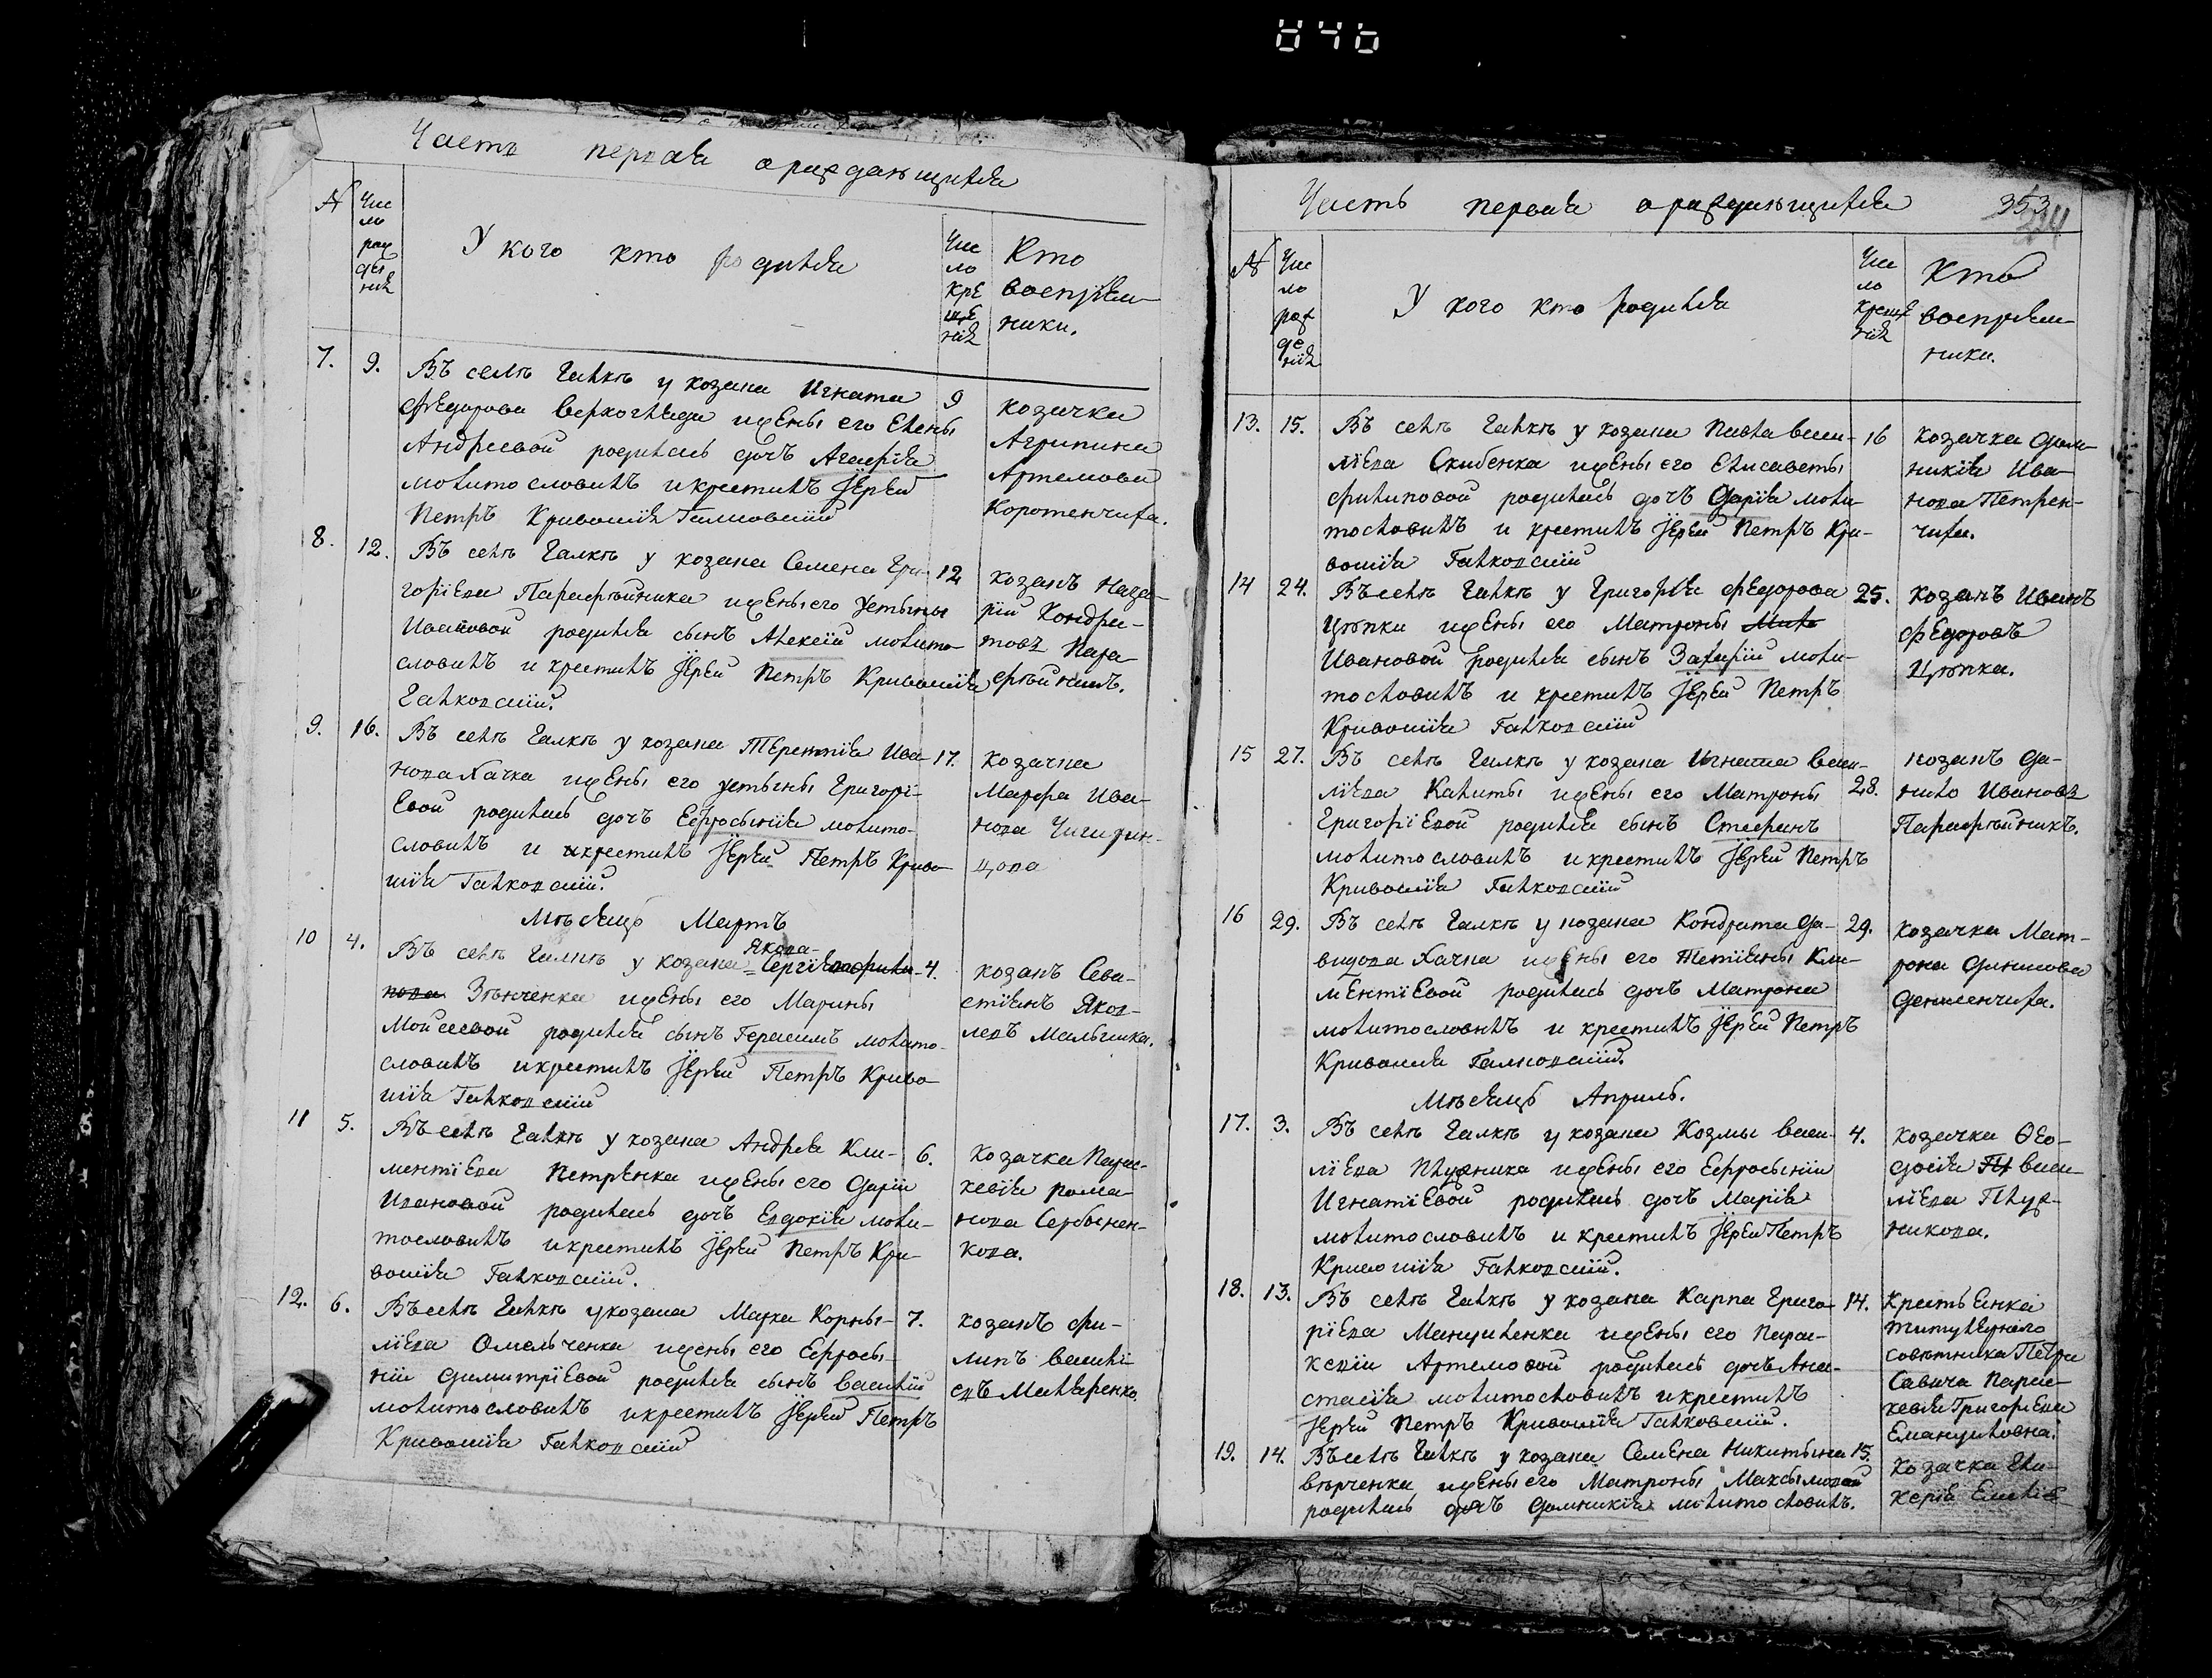 846
Часть первая о раждающихся
№
Чис
ло
рож
де
нія
У кого кто родился
Чис
ло
кре
ще
нія
Кто
воспріем-
ники.
7. 9. Въ селѣ Галкѣ у козака Игната 9
Федорова Верхогляда и жены его Елены
Андреевой родилась дочь Агафія
молитвословилъ и крестилъ Іерей
Петръ Кривошія Галковскій
козачка
Агрипина
Артемова
Коротенчиха.
8. 12. Въ селѣ Галкѣ у козака Семена Гри- 12
горіева Парафѣйника и жены его Устыны
Ивановой родился сынъ Алексій молито-
словилъ и крестилъ Іерей Петръ Кривошія
Галковскій.
козакъ Наза-
рій Кондра-
товъ Пара-
фѣйникъ.
9. 16. Въ селѣ Галкѣ у козака Терентія Ива- 17.
нова Хачка и жены его Устыны Григорі-
евой родилась дочь Ефросынія молито-
словилъ и крестилъ Іерей Петръ Криво-
шія Галковскій.
козачка
Марфа Ива-
нова Чигирин-
цова
Мѣсяцъ Мартъ
10 4. Въ селѣ Галкѣ у козака Якова 4.
Зѣнченка и жены его Марины
Мойсеевой родился сынъ Герасимъ молито-
словилъ и крестилъ Іерей Петръ Криво-
шія Галковскій
козакъ Сева-
стіянъ Яков-
левъ Малышка.
11 5. Въ селѣ Галкѣ у козака Андрея Кли- 6.
ментіева Петренка и жены его Даріи
Ивановой родилась дочь Евдокія моли-
тословилъ и крестилъ Іерей Петръ Кри-
вошія Галковскій.
козачка Парас-
кевія Рома-
нова Сербынен-
кова.
12. 6. Въ селѣ Галкѣ у козака Марка Корны- 7.
ліева Омельченка и жены его Ефросы-
ніи Димитріевой родился сынъ Василій
молитословилъ и крестилъ Іерей Петръ
Кривошія Галковскій
козакъ Фи-
липъ Василі-
евъ Маляренко.
Часть первая о раждающихся 353
№
Чис
ло
рож
де
нія
У кого кто родился
Чис
ло
креще
нія
Кто
воспріем-
ники.
13. 15. Въ селѣ Галкѣ у козака Павла Васи- 16
ліева Скибенка и жены его Елисаветы
Филиповой родилась дочь Дарія моли-
тословилъ и крестилъ Іерей Петръ Кри-
вошія Галковскій
козачка Дом-
никія Ива-
нова Петрен-
чиха.
14 24. Въ селѣ Галкѣ у Григорія Федорова 25.
Цѣпки и жены его Матроны
Ивановой родился сынъ Захарій моли-
тословилъ и крестилъ Іерей Петръ
Кривошія Галковскій
козакъ Иванъ
Федоровъ
Цѣпка.
15 27. Въ селѣ Галкѣ у козака Игната Васи-
ліева Калиты и жены его Матроны 28.
Григоріевой родился сынъ Стефанъ
молитословилъ и крестилъ Іерей Петръ
Кривошія Галковскій
козакъ Да-
нило Ивановъ
Парафѣйникъ.
16 29. Въ селѣ Галкѣ у козака Кондрата Да- 29.
видова Хачка и жены его Тетіяны Кли-
ментіевой родилась дочь Матрона
молитословилъ и крестилъ Іерей Петръ
Кривошія Галковскій.
козачка Мат-
рона Данилова
Мѣсяцъ Априль.
17. 3. Въ селѣ Галкѣ у козака Козмы Васи- 4.
ліева Плужника и жены его Ефросыніи
Игнатіевой родилась дочь Марія
молитословилъ и крестилъ Іерей Петръ
Кривошія Галковскій.
козачка Ѳео-
досія Васи-
ліева Плуж-
никова.
18. 13. Въ селѣ Галкѣ у козака Карпа Григо- 14.
ріева Мануиленка и жены его Парас-
кевіи Артемовой родилась дочь Ана-
стасія молитословилъ и крестилъ
Іерей Петръ Кривошія Галковскій.
Крестьянка
титулярного
совѣтника Петра
Савича Парас-
кевія Григоріева
Емануиловна.
19. 14. Въ селѣ Галкѣ у козака Семена Никитына 15.
Вѣрченка и жены его Матроны Максымовой
родилась дочь Домникія молитословилъ.
козачка Гли-
керія